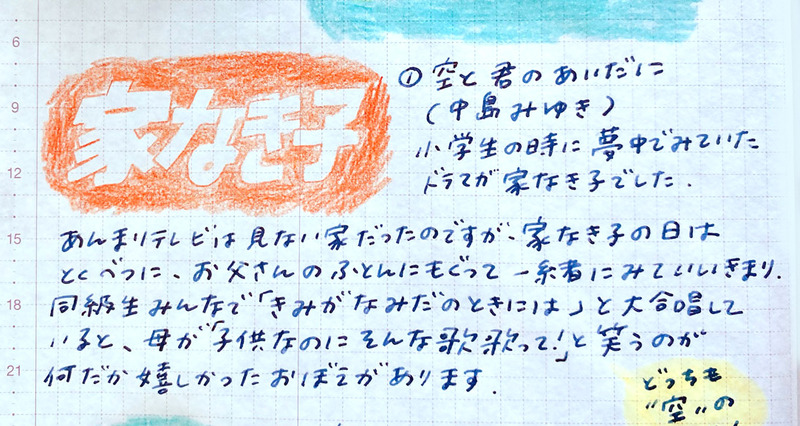 6
9
12
15
18
21
家なき子
① 空と君のあいだに
(中島みゆき)
小学生の時に夢中でみていた
ドラマが家なき子でした.
あんまりテレビは見ない家だったのですが、家なき子の日は
とくべつに、お父さんのふとんにもぐって一緒にみていいきまり.
同級生みんなで「きみがなみだのときには」と大合唱して
いると、母が「子供なのにそんな歌歌って!」と笑うのが
何だか嬉しかったおぼえがあります.
どっちも
"空"の